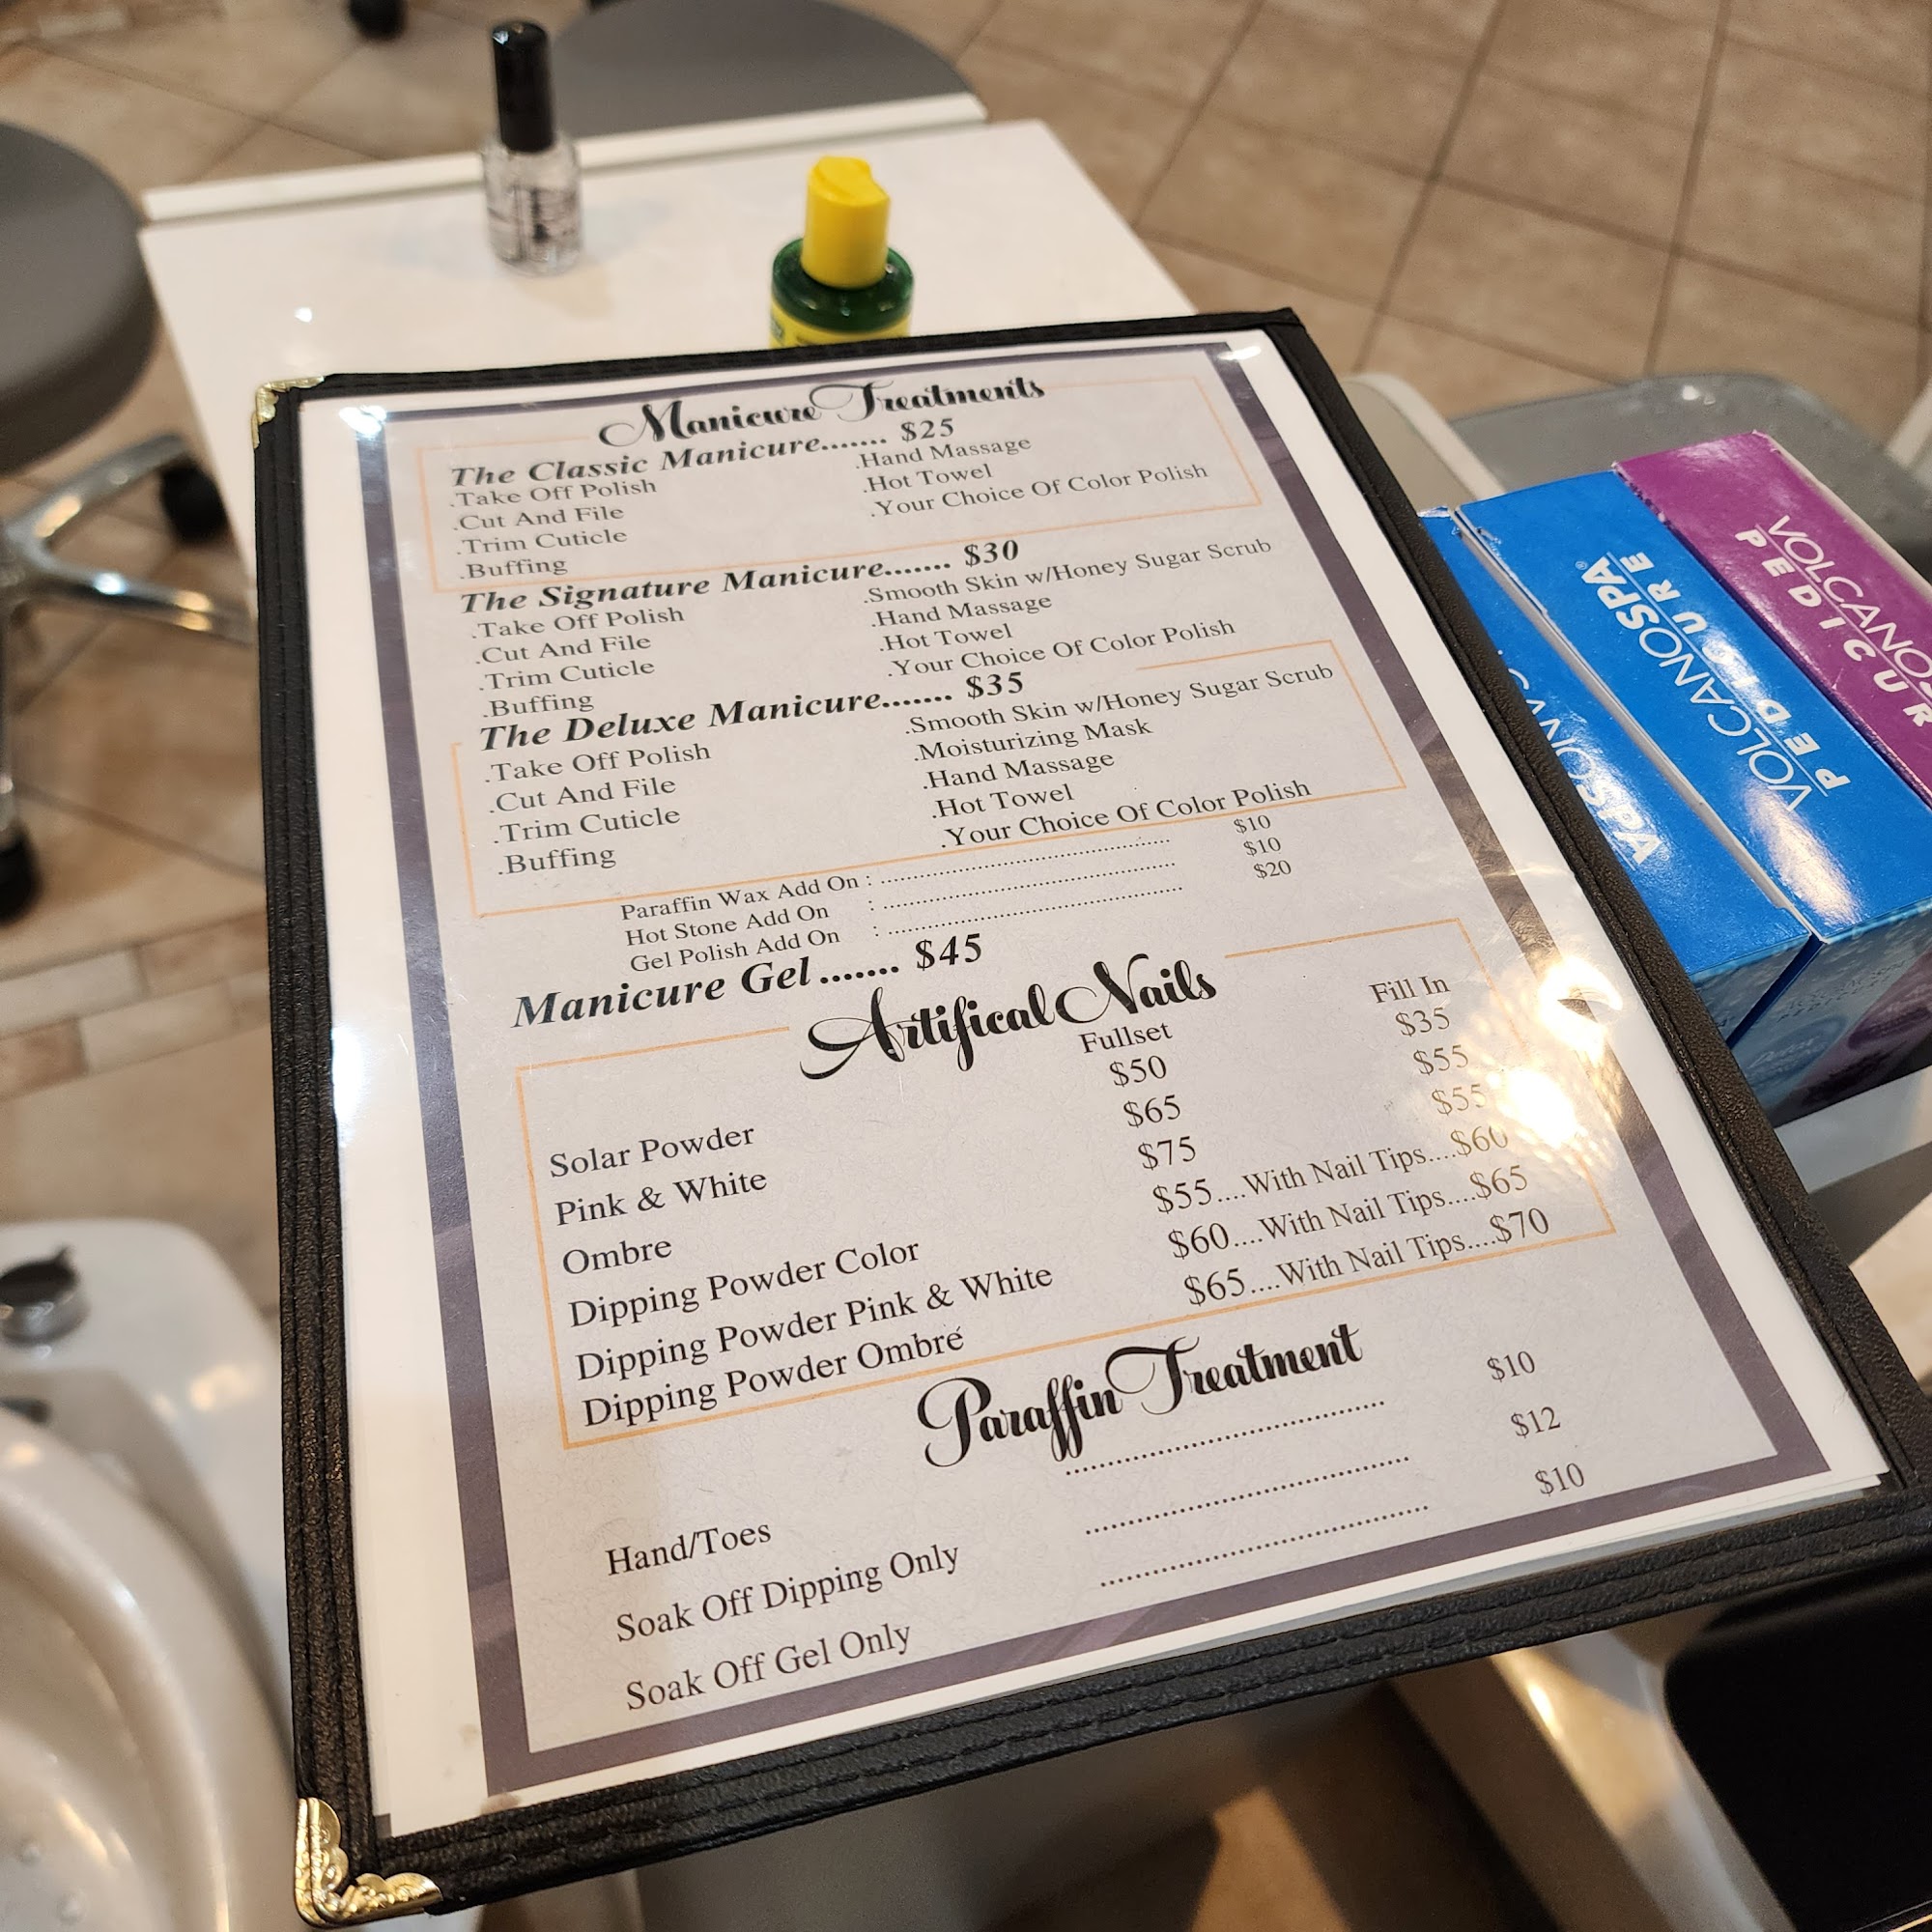 Manicure Treatments
The Classic Manicure....... $25
.Take Off Polish
.Cut And File
.Trim Cuticle
.Buffing
.Hand Massage
.Hot Towel
.Your Choice Of Color Polish
The Signature Manicure....... $30
.Take Off Polish
.Cut And File
.Trim Cuticle
.Buffing
.Smooth Skin w/Honey Sugar Scrub
.Hand Massage
.Hot Towel
.Your Choice Of Color Polish
The Deluxe Manicure....... $35
.Take Off Polish
.Cut And File
.Trim Cuticle
.Buffing
.Smooth Skin w/Honey Sugar Scrub
.Moisturizing Mask
.Hand Massage
.Hot Towel
.Your Choice Of Color Polish
Paraffin Wax Add On : ........................................ $10
Hot Stone Add On : ........................................ $10
Gel Polish Add On : ........................................ $20
Manicure Gel ....... $45
Artifical Nails
Fullset Fill In
Solar Powder $50 $35
Pink & White $65 $55
Ombre $75 $55
Dipping Powder Color $55....With Nail Tips....$60
Dipping Powder Pink & White $60....With Nail Tips....$65
Dipping Powder Ombré $65....With Nail Tips....$70
Paraffin Treatment
Hand/Toes ........................................ $10
Soak Off Dipping Only ........................................ $12
Soak Off Gel Only ........................................ $10
VOLCANOSPA®
PEDICURE
VOLCANOS
PEDICUR